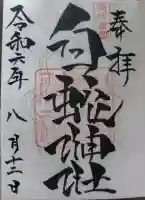 奉拝
白蛇神社
令和六年
八月十二日